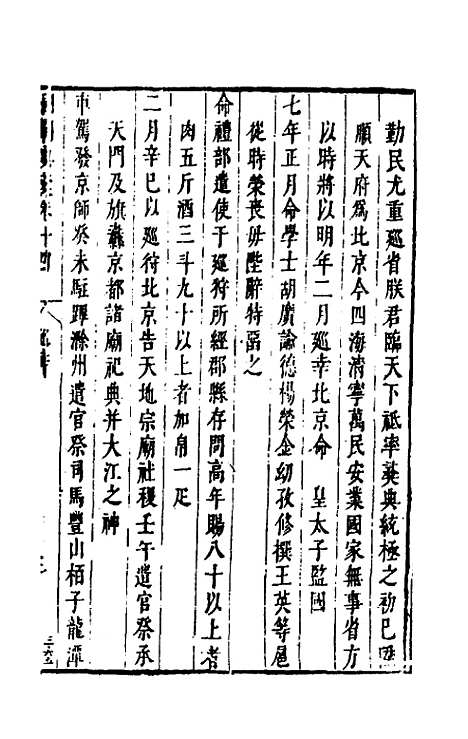 勤民尤重巡省朕君臨天下祗率彝典統極之初已陞
順天府爲北京今四海清寧萬民安業國家無事省方
以時將以明年二月巡幸北京命 皇太子監國
七年正月命學士胡廣諭德楊榮金幼孜修撰王英等扈
從時榮喪毋陛辭特畱之
命禮部遣使于巡狩所經郡縣存問高年賜八十以上者
肉五斤酒三斗九十以上者加帛一疋
二月辛巳以巡狩北京告天地宗廟社稷壬午遣官祭承
天門及旗纛京都諸廟祀典并大江之神
車駕發京師癸未駐蹕滁州遣官祭司馬豐山栢子龍潭
卷十四